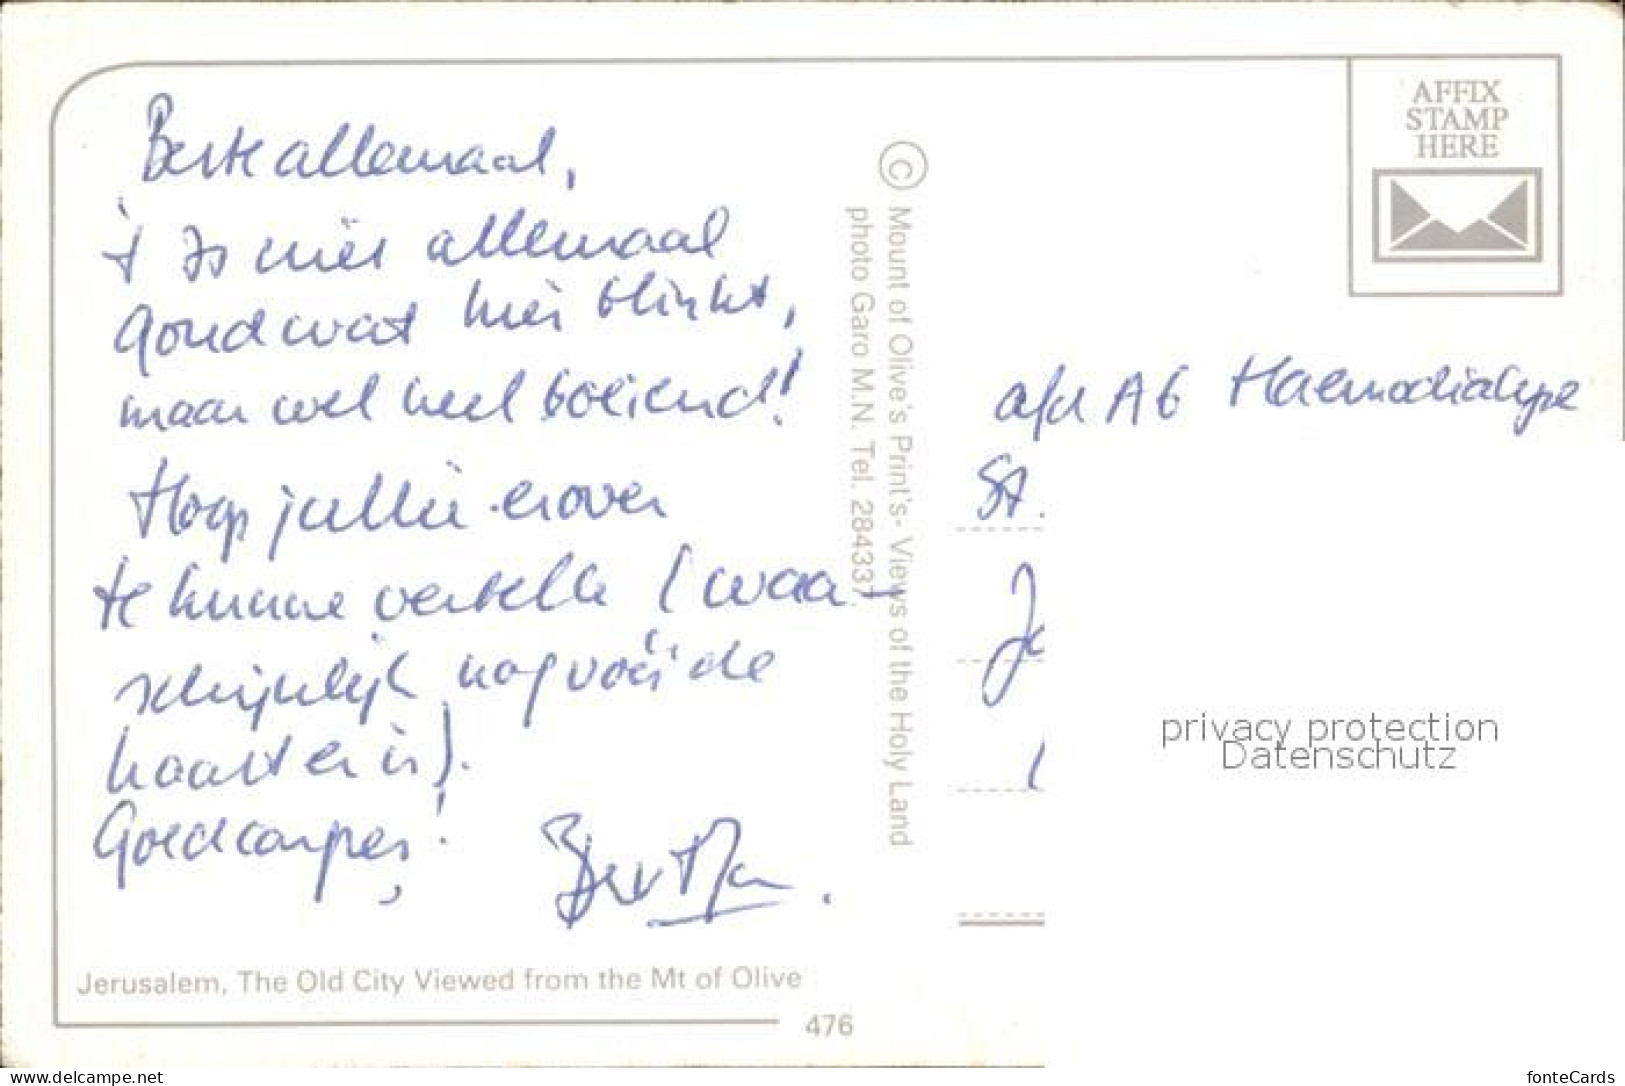 Beste allemaal,
't Is niet allemaal
Goud wat hier blinkt,
maar wel heel boeiend!
Hoop jullie erover
te kunne vertelle (waar-
schijnlijk nog vóór de
kaart er is).
Goedcarpes!
Jerusalem, The Old City Viewed from the Mt of Olive
476
© Mount of Olive's Print's- Views of the Holy Land
photo Garo M.N. Tel. 284337.
AFFIX
STAMP
HERE
afd A6 Haemodialyse
St.
privacy protection
Datenschutz
www.delcampe.net
fonteCards